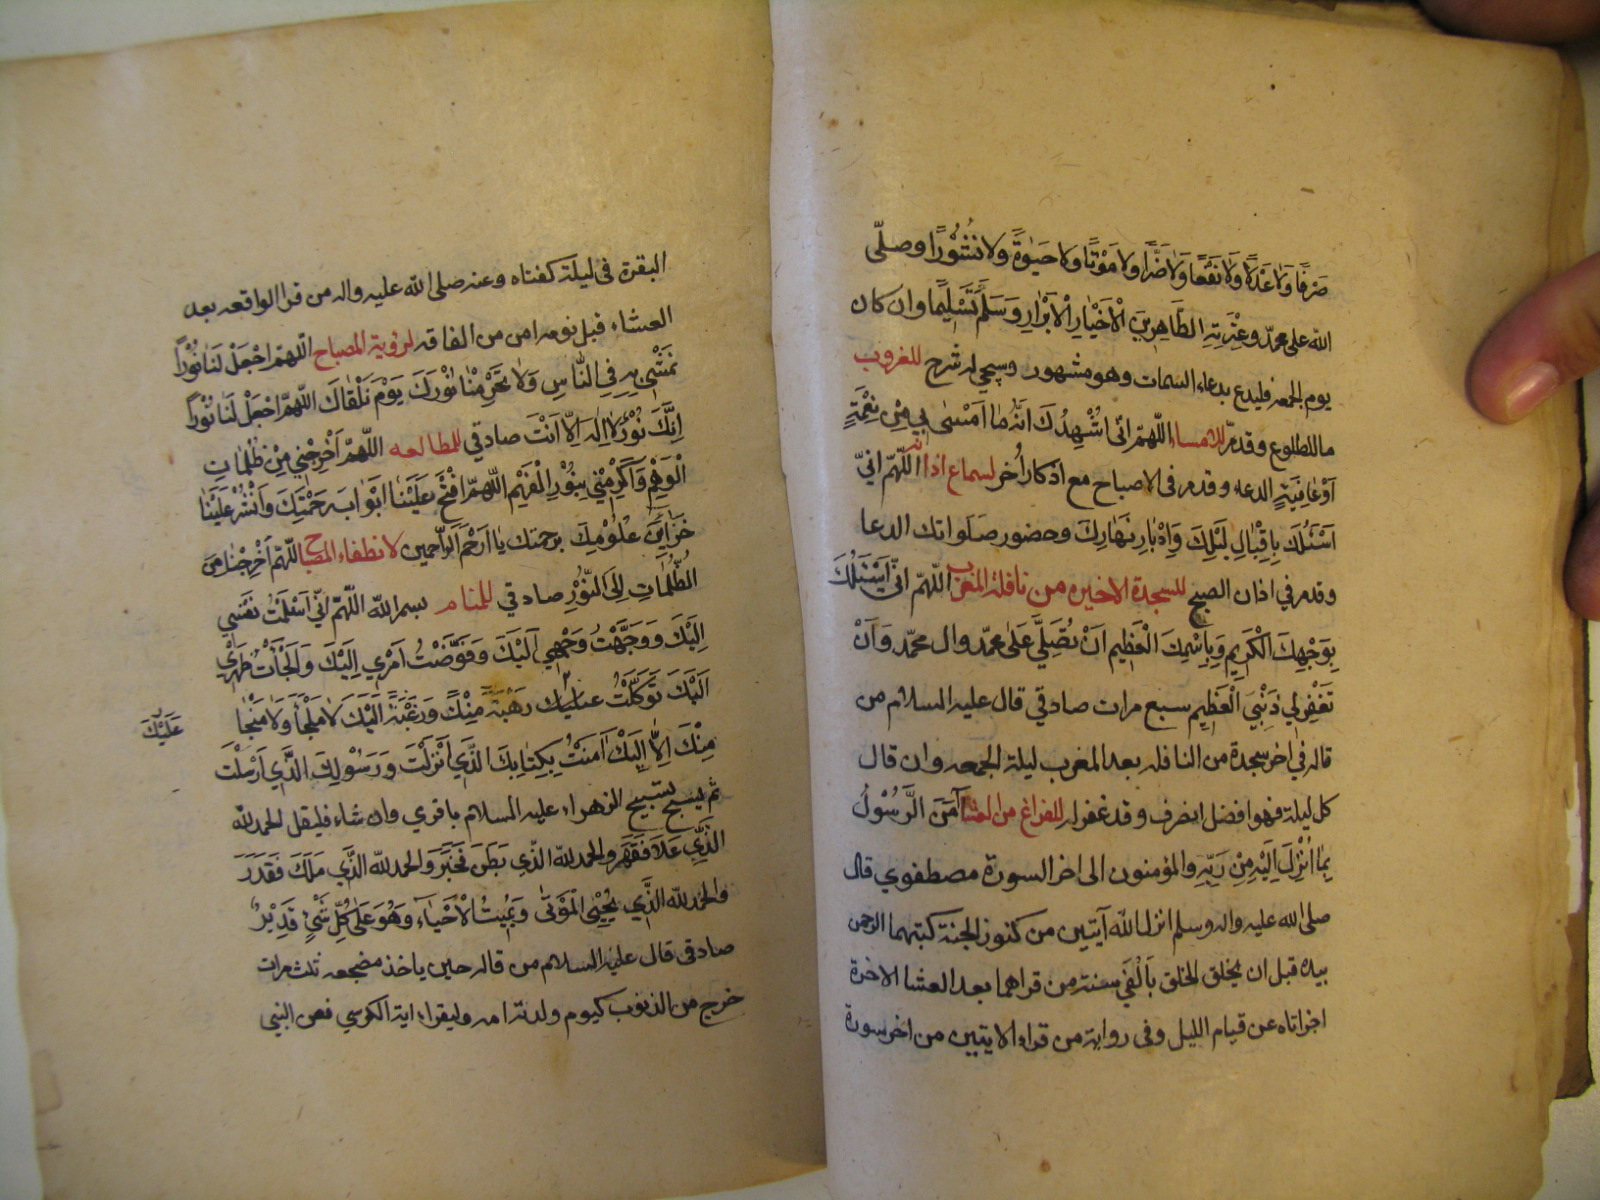 صَرْفًا وَلَا عَدْلًا وَلَا نَفْعًا وَلَا ضَرًّا وَلَا مَوْتًا وَلَا حَيٰوةً وَلَا نُشُوْرًا وصلّى
الله على محمّد وعِتْرَتِهِ الطَّاهِرِينَ الْاَخْيَارِ الْاَبْرَارِ وَسَلَّمَ تَسْلِيمًا وان كان
يوم الجمعه فليدع بدعاء السمات وهو مشهور وسيجى له شرح للغروب
ما للطلوع وقد مرّ للامساء اللّهمّ انّى اُشْهِدُكَ انّهُ مَا اَمْسٰى بي مِنْ نِعْمَةٍ
اَوْ عَافِيَةٍ الدعه وقد مر فى الاصباح مع اذكار اُخر لسماع اذانه اللّهمّ انّيّ
اَسْئَلُكَ بِاِقْبَالِ لَيْلِكَ وَاِدْبَارِ نَهَارِكَ وحضور صلواتك الدعا
وقد مر في اذان الصبح للسجدة الاخيره من نافلة المغرب اللّهمّ انّي اَسْئَلُكَ
بِوَجْهِكَ الْكَرِيمِ وَبِاِسْمِكَ الْعَظِيمِ اَنْ تُصَلِّيَ عَلى محمّد وال محمّد وَاَنْ
تَغْفِرَ لي ذَنْبِيَ الْعَظِيم سبع مرات صادقي قال عليه السلام من
قاله في اخر سجدة من النافله بعد المغرب ليلة الجمعه وان قال
كل ليلة فهو افضل انصرف وقد غفر له للفراغ من العشا آمَنَ الرَّسُولُ
بِمَا اُنْزِلَ اِلَيْهِ مِنْ رَبِّهِ والمؤمنون الى اخر السورة مصطفوي قال
صلى الله عليه واله وسلم انزل الله آيتين من كنوز الجنة كتبهما الرحمن
بيده قبل ان يخلق الخلق بِاَلْفَي سنة من قراهما بعد العشا الاخرة
اجزاتاه عن قيام الليل وفى رواية من قراء الايتين من اخر سورة
البقرة فى ليلة كفتاه وعنه صلى الله عليه واله من قرا الواقعه بعد
العشاء قبل نومه امن من الفاقه لرؤية المصباح اللّهمّ اجْعَلْ لَنَا نُوْرًا
نَمْشْيِ بِهِ فِي النَّاسِ وَلَا تَحْرِمْنَا نُوْرَكَ يَوْمَ نَلْقَاكَ اللّهمّ اجْعَلْ لَنَا نُوْرًا
اِنَّكَ نُوْرٌ لَا اِلٰهَ اِلَّا اَنْتَ صادقي للمطالعه اللّهُمّ اَخْرِجْنِي مِنْ ظُلُمَاتِ
الْوَهْمِ وَاَكْرِمْنِي بِنُوْرِ الْفَهْمِ اللّهُمّ افْتَحْ عَلَيْنَا ابْوَابَ رَحْمَتِكَ وَانْشُرْ عَلَيْنَا
خَزَايِنَ عُلُوْمِكَ برحمتك يَا اَرْحَمَ الرَّاحِمين لانطفاء المصباح اللّهمّ اَخْرِجْنا مِنَ
الظُّلُمَاتِ اِلَى النُّوْرِ صادقي للمنام بسم الله اللّهُمّ انّي اَسْلَمْتُ نَفْسِي
اِلَيْكَ وَوَجَّهْتُ وَجْهِي اِلَيْكَ وَفَوَّضْتُ اَمْرِي اِلَيْكَ وَاَلْجَأْتُ ظَهْرِي
اِلَيْكَ تَوَكَّلْتُ عَلَيْكَ رَهْبَةً مِنْكَ وَرَغْبَةً اِلَيْكَ لَا مَلْجَأَ وَلَا مَنْجَا
عَلَيْكَ
مِنْكَ اِلَّا اِلَيْكَ اٰمَنْتُ بِكِتَابِكَ الَّذِي اَنْزَلْتَ وَرَسُوْلِكَ الَّذِي اَرْسَلْتَ
ثم يسبح تسبيح الزهراء عليه السلام باقري وان شاء فليقل الحمد لله
الَّذِي عَلَا فَقَهَرَ والحمد لله الذّي بَطَنَ فَخَبَرَ والحمد لله الذَّي مَلَكَ فَقَدَرَ
والحمد لله الذَّي يُحْيِي الْمَوْتٰى وَيُمِيتُ الْاَحْيَاءَ وَهُوَ عَلى كُلِّ شَيْءٍ قَدِيْرٌ
صادقى قال عليه السلام من قاله حين ياخذ مضجعه ثلث مرات
خرج من الذنوب كيوم ولدته امه وليقراء اية الكرسي فعن النبي